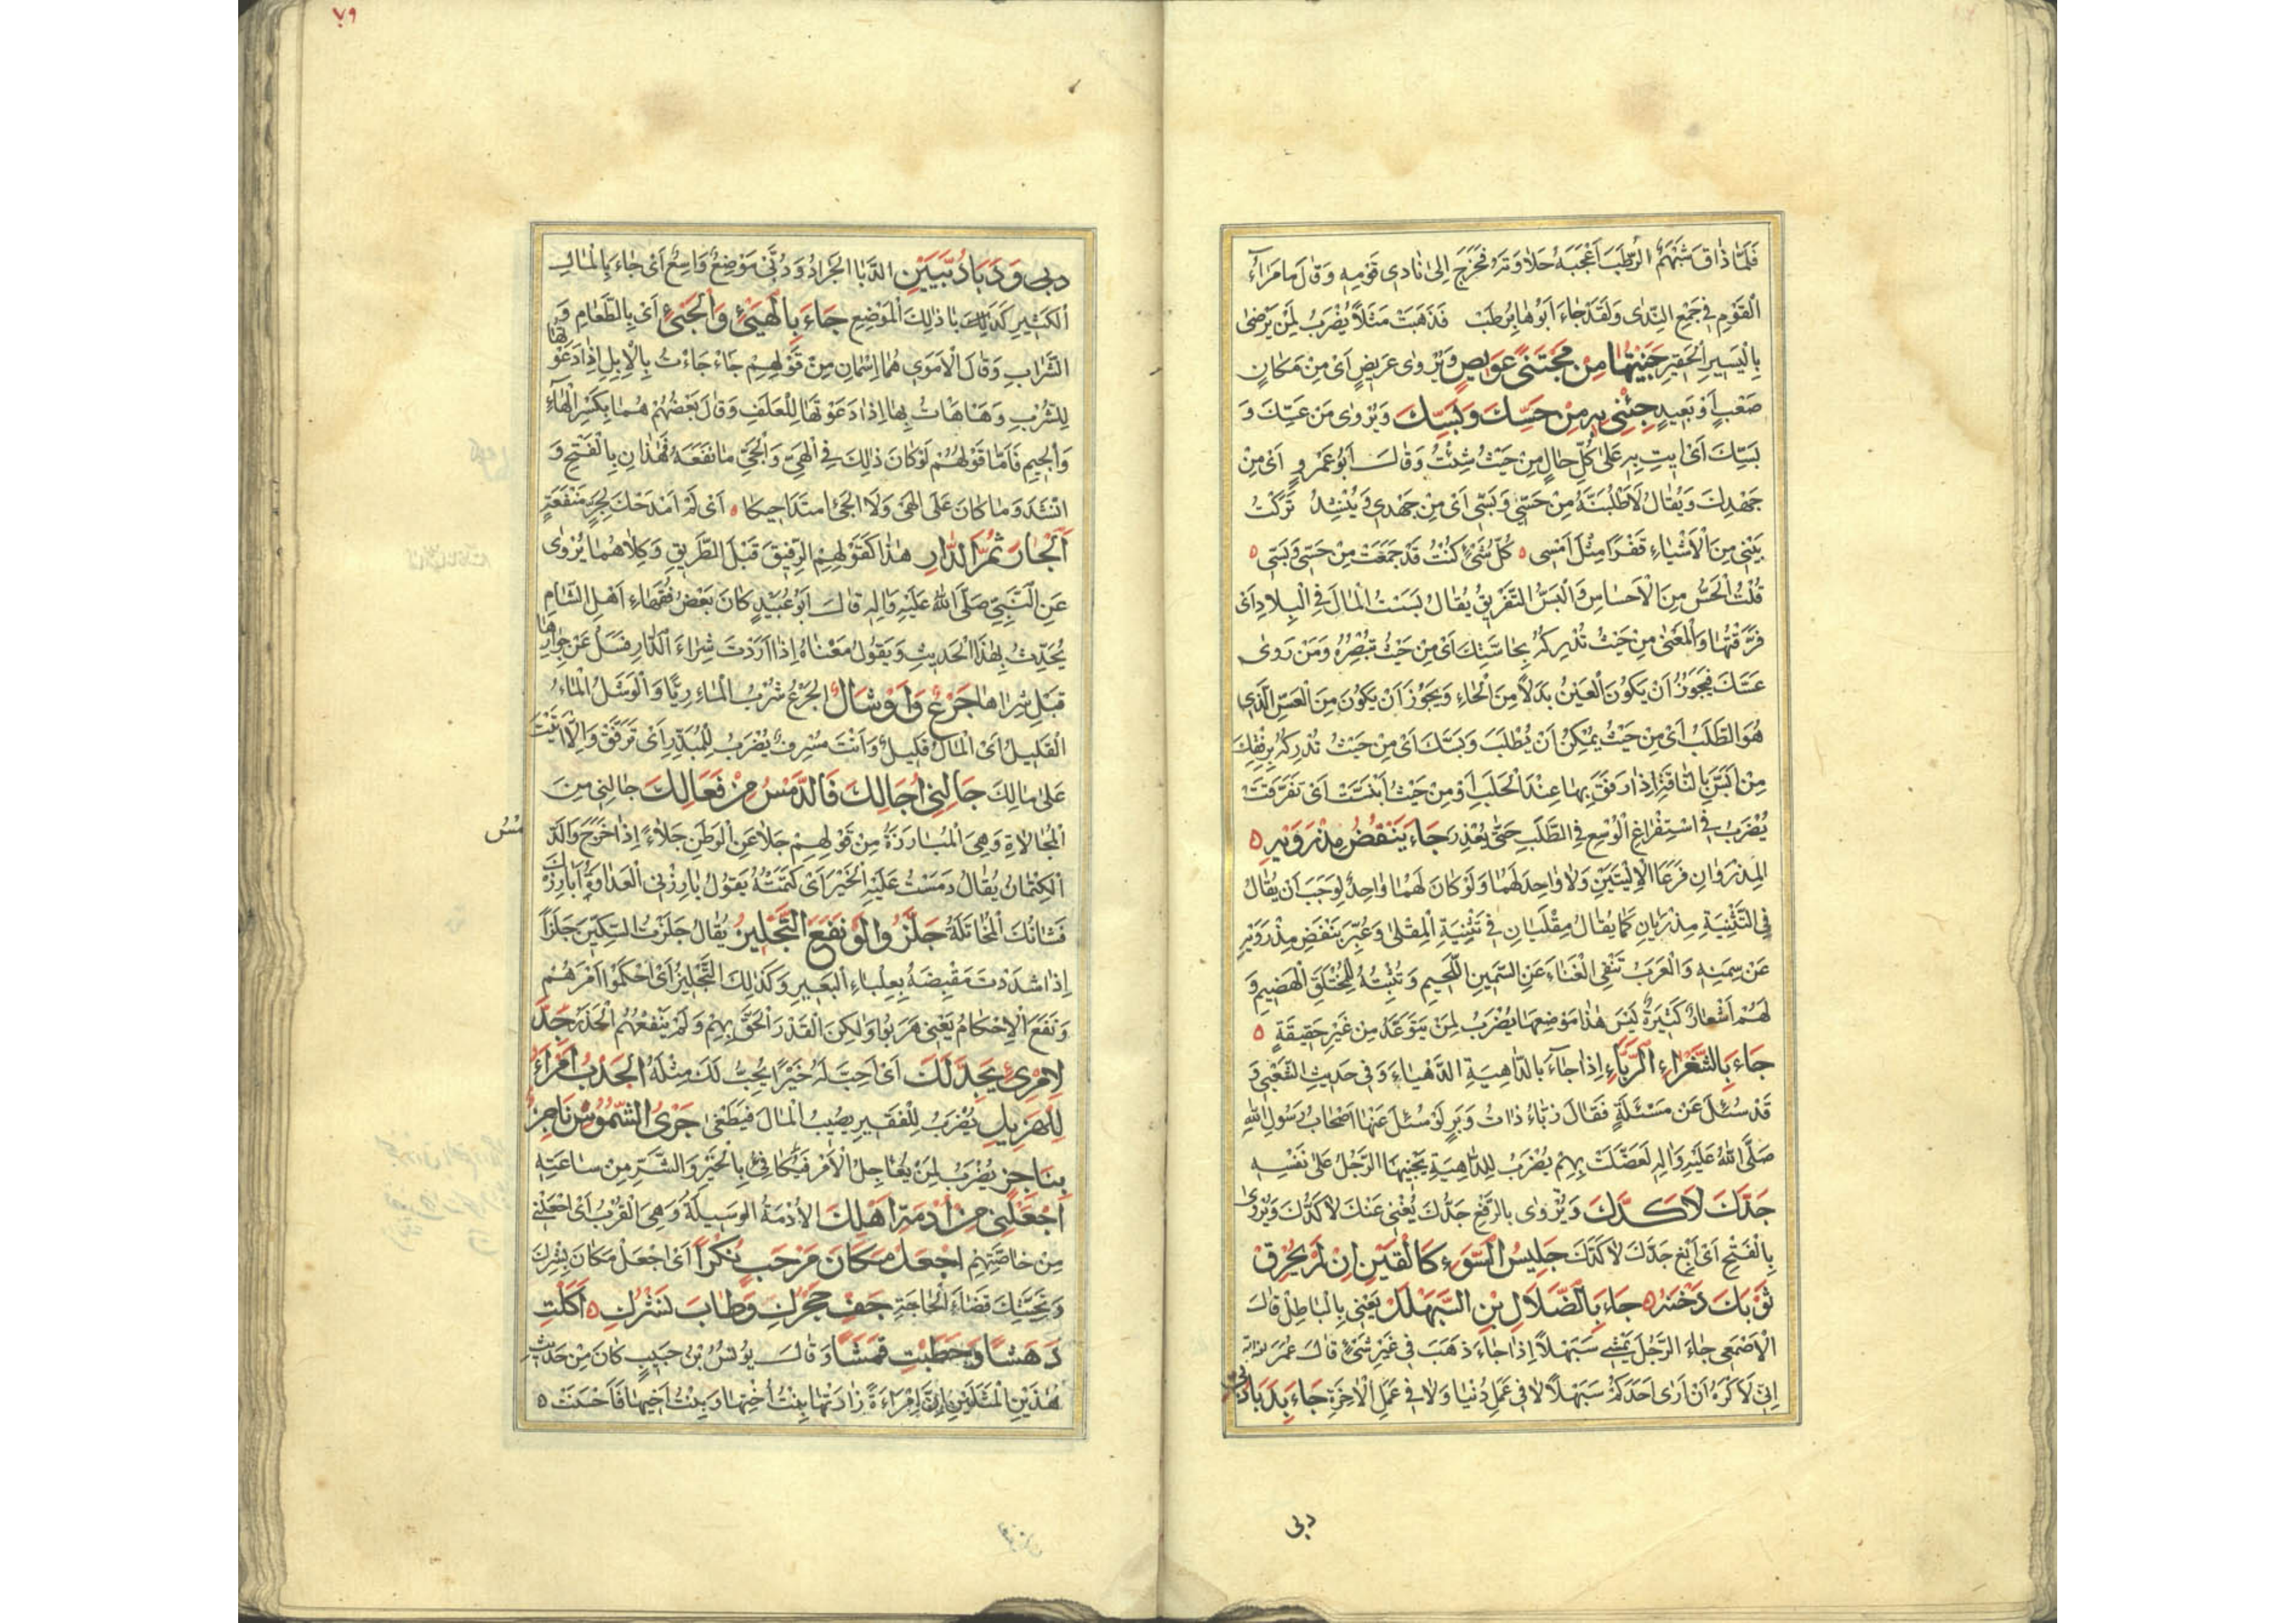 فَلَمَّا ذَاقَ شَبْهَمُ الرُّطَبَ اَعْجَبَهُ حَلَاوَتَهُ فَخَرَجَ اِلىٰ نَادِي قَوْمِهِ وَقَالَ مَا مَرَاءُ
الْقَوْمِ فِي جَمْعِ النَّدٰى وَلَقَدْ جَاءَ اَبُوهَا بِرُطَبْ فَذَهَبَتْ مَثَلًا يُضْرَبُ لِمَنْ يَرْضىٰ
بِالْيَسِيرِ الْحَقِيرِ جَنَيْتُهَا مِنْ مُجْتَنًى عَوِيصٍ وَيُرْوٰى عَرِيضٍ اَىْ مِنْ مَكَانٍ
صَعْبٍ اَوْ بَعِيدٍ جِئْنِي بِهِ مِنْ حَسِّكَ وَبَسِّكَ وَيُرْوٰى مَن عَسِّكَ وَ
بَسِّكَ اَىْ اِيتِ بِهِ عَلىٰ كُلِّ حَالٍ مِنْ حَيْثُ شِئْتُ وَقَالَ اَبُو عَمْرٍو اَىْ مِنْ
جَهْدِكَ وَيُقَالُ لَاَطْلُبَنَّهُ مِنْ حَسِّي وَبَسِّي اَىْ مِنْ جَهْدِي وَيُنْشَدُ تَرَكْتُ
بَيْتِي مِنَ الْاَشْيَاءِ قَفْرًا مِثْلَ اَمْسِى ٥ كُلُّ شَيْءٍ كُنْتُ قَدْ جَمَعْتُ مِنْ حَسِّي وَبَسِّي ٥
قُلْتُ الْحَسُّ مِنَ الْاَحْسَاسِ وَالْبَسُّ التَّفْرِيقُ يُقَالُ بَسَسْتُ الْمَالَ فِي الْبِلَادِ اَىْ
فَرَّقْتُهَا وَالْمَعْنىٰ مِنْ حَيْثُ تُدْرِكُهُ بِحَاسَّتِكَ اَىْ مِنْ حَيْثُ تُبْصِرُهُ وَمَنْ رَوىٰ
عَسِّكَ فَيَجُوزُ اَنْ يَكُونَ الْعَيْنُ بَدَلًا مِنَ الْحَاءِ وَيَجُوزُ اَنْ يَكُونَ مِنَ الْعَسِّ الَّذِي
هُوَ الطَّلَبُ اَىْ مِنْ حَيْثُ يُمْكِنُ اَنْ يُطْلَبَ وَبَسِّكَ اَىْ مِنْ حَيْثُ تُدْرِكُهُ بِرِفْقِكَ
مِنْ اَبَسَّ بِالنَّاقَةِ اِذَا رَفَقَ بِهَا عِنْدَ الْحَلَبِ اَوْ مِنْ حَيْثُ اَبْنَسَّتْ اَىْ تَفَرَّقَتْ
يُضْرَبُ فِي اسْتِفْرَاغِ الْوُسْعِ فِي الطَّلَبِ حَتّٰى يُعْذِرَ جَاءَ يَنْفُضُ مِذْرَوَيْهِ ٥
الْمِذْرَوَانِ فَرْعَا الْاِلْيَتَيْنِ وَلَا وَاحِدَ لَهُمَا وَلَوْ كَانَ لَهُمَا وَاحِدٌ لَوَجَبَ اَنْ يُقَالَ
فِي التَّثْنِيَةِ مِذْرَيَانِ كَمَا يُقَالُ مِقْلَيَانِ فِي تَثْنِيَةِ الْمِقْلىٰ وَعُبِّرَ بِنَفْضِ مِذْرَوَيْهِ
عَنْ سِمَنِهِ وَالْعَرَبُ تَنْفِى الْغَنَاءَ عَنِ السَّمِينِ اللَّحِيمِ وَتُثْبِتُهُ لِلْمُخْتَلَقِ الْهَضِيمِ وَ
لَهُمْ اَشْعَارٌ كَثِيرَةٌ لَيْسَ هٰذَا مَوْضِعَهَا يُضْرَبُ لِمَنْ يَتَوَعَّدُ مِنْ غَيْرِ حَقِيقَةٍ ٥
جَاءَ بِالشَّعْرَاءِ الزَّبَّاءِ اِذَا جَاءَ بِالدَّاهِيَةِ الدَّهْيَاءِ وَفِي حَدِيثِ الشَّعْبِي وَ
قَدْ سُئِلَ عَنْ مَسْئَلَةٍ فَقَالَ زَبَّاءُ ذَاتُ وَبَرٍ لَوْ سُئِلَ عَنْهَا اَصْحَابُ رَسُولِ اللهِ
صَلَّى اللهُ عَلَيْهِ وَاٰلِهِ لَعَضَلَتْ بِهِمْ يُضْرَبُ لِلدَّاهِيَةِ يَجْنِيهَا الرَّجُلُ عَلىٰ نَفْسِهِ
جَدُّكَ لَا كَدَّكَ وَيُرْوٰى بِالرَّفْعِ جَدُّكَ يُغْنِي عَنْكَ لَا كَدُّكَ وَيُرْوٰى
بِالْفَتْحِ اَىْ اَبْغِ جَدَّكَ لَا كَدَّكَ جَلِيسُ السَّوْءِ كَالْقَيْنِ اِنْ لَمْ يُحْرِقْ
ثَوْبَكَ دَخَّنَهُ ٥ جَاءَ بِالضَّلَالِ بْنِ السَّبَهْلَلِ يَعْنِي بِالْبَاطِلِ قَالَ
الْاَصْمَعِي جَاءَ الرَّجُلُ يَمْشِي سَبَهْلَلًا اِذَا جَاءَ ذَهَبَ فِي غَيْرِ شَيْءٍ قَالَ عُمَرُ
اِنّى لَاَكْرَهُ اَنْ اَرٰى اَحَدَكُمْ سَبَهْلَلًا لَا فِي عَمَلِ دُنْيَا وَلَا فِي عَمَلِ الْاٰخِرَةِ جَاءَ بِدَبَا دُبَيٍّ
دبى
٧٩
دبى وَدَبَا دُبَيَّيْنِ الدَّبَا الْجَرَادُ وَدُبَيٌّ مَوْضِعٌ وَاسِعٌ اَىْ جَاءَ بِالْمَالِ
الْكَثِيرِ كَدَبَا ذٰلِكَ الْمَوْضِعِ جَاءَ بِالْهَيْءِ وَالْجَيْءِ اَىْ بِالطَّعَامِ وَ
الشَّرَابِ وَقَالَ الْاَمَوِي هُمَا اِسْمَانِ مِنْ قَوْلِهِمْ جَاءْ جَاءْتُ بِالْاِبِلِ اِذَا دَعَوْتَهَا
لِلشُّرْبِ وَهَاهَاتُ بِهَا اِذَا دَعَوْتَهَا لِلْعَلَفِ وَقَالَ بَعْضُهُمْ هُمَا بِكَسْرِ الْهَاءِ
وَالْجِيمِ فَاَمَّا قَوْلُهُمْ لَوْ كَانَ ذٰلِكَ فِي الْهَيِّ وَالْجَيِّ مَا نَفَعَهُ فَهٰذَانِ بِالْفَتْحِ وَ
انْشَدَ وَمَا كَانَ عَلَى الْهَيْ وَلَا الْجَيْ امتِدَاحِيكَا ٥ اَىْ لَمْ اَمْدَحْكَ لِجَرِّ مَنْفَعَةٍ
اَلْجَارَ ثُمَّ الدَّارِ هٰذَا كَقَوْلِهِمُ الرَّفِيقَ قَبْلَ الطَّرِيقِ وَكِلَاهُمَا يُرْوٰى
عَنِ النَّبِيِّ صَلَّى اللهُ عَلَيْهِ وَاٰلِهِ قَالَ اَبُو عُبَيْدٍ كَانَ بَعْضُ فُقَهَاءِ اَهْلِ الشَّامِ
يُحَدِّثُ بِهٰذَا الْحَدِيثِ وَيَقُولُ مَعْنَاهُ اِذَا اَرَدْتَ شِرَاءَ الدَّارِ فَسَلْ عَنْ جِوَارِهَا
قَبْلَ شِرَاهَا جَرْعٌ وَاَوْشَالٌ الْجَرْعُ شُرْبُ الْمَاءِ رِيًّا وَالْوَشَلُ الْمَاءُ
الْقَلِيلُ اَىْ الْمَالُ قَلِيلٌ وَاَنْتَ مُسْرِفٌ يُضْرَبُ لِلْمُبَذِّرِ اَىْ تَرَفَّقْ وَاِلَّا اَتَيْتَ
عَلىٰ مَالِكَ جَالِنِي اُجَالِكَ فَالدَّمْسُ مِنْ فَعَالِكَ جَالِنِي مِنَ
الْمُجَالَاةِ وَهِيَ الْمُبَارَزَةُ مِنْ قَوْلِهِمْ جَلَا عَنِ الْوَطَنِ جَلَاءً اِذَا خَرَجَ وَالدَّ
مْسُ
الْكِتْمَانُ يُقَالُ دَمَسْتُ عَلَيْهِ الْخَبَرَ اَىْ كَتَمْتُهُ يَقُولُ بَارِزْنِي الْعَدَاوَةَ اُبَارِزْكَ
فَشَانُكَ الْمُخَاتَلَةُ جَلَّزُوا لَوْ نَفَعَ التَّجْلِيزُ يُقَالُ جَلَزْتُ السِّكِّينَ جَلْزًا
اِذَا شَدَدْتَ مَقْبِضَهُ بِعِلْبَاءِ الْبَعِيرِ وَكَذٰلِكَ التَّجْلِيزُ اَىْ اَحْكَمُوا اَمْرَهُمْ
وَنَفَعَ الْاِحْكَامُ يَعْنِي هَرَبُوا وَلٰكِنَّ الْقَدَرَ اَلْحَقَّ بِهِمْ وَلَمْ يَنْفَعْهُمُ الْحَذَرُ جِدَّ
لِامْرِئٍ يَجِدَّ لَكَ اَىْ اَحِبَّ لَهُ خَيْرًا يُحِبَّ لَكَ مِثْلَهُ الْجَدْبُ اَمْرَأُ
لِلْهَزِيلِ يُضْرَبُ لِلْفَقِيرِ يُصِيبُ الْمَالَ فَيَطْغىٰ جَرْىُ الشَّمُوسِ نَاجِزٌ
بِنَاجِزٍ يُضْرَبُ لِمَنْ يُعَاجِلُ الْاَمْرَ فَيُكَافِئُ بِالْخَيْرِ وَالشَّرِّ مِنْ سَاعَتِهِ
اِجْعَلْنِي مِنْ اَدَمَةِ اَهْلِكَ الْاَدَمَةُ الْوَسِيلَةُ وَهِيَ الْقُرْبُ اَىْ اجْعَلْنِي
مِنْ خَاصَّتِهِمْ اِجْعَلْ مَكَانَ مَرْحَبٍ نُكْرًا اَىْ اجْعَلْ مَكَانَ بِشْرِكَ
وَتَحِيَّتِكَ قَضَاءَ الْحَاجَةِ جَفَّ حَجْرُكِ وَطَابَ نَشْرُكِ ٥ اَكَلْتِ
دَهَشًا وَحَطَبْتِ قَمْشًا وَقَالَ يُونُسُ بْنُ حَبِيبٍ كَانَ مِنْ حَدِيثِ
هٰذَيْنِ الْمَثَلَيْنِ اَنَّ اِمْرَاَةً زَارَتْهَا بِنْتُ اُخْتِهَا وَبِنْتُ اَخِيهَا فَاَحْسَنَتْ ٥